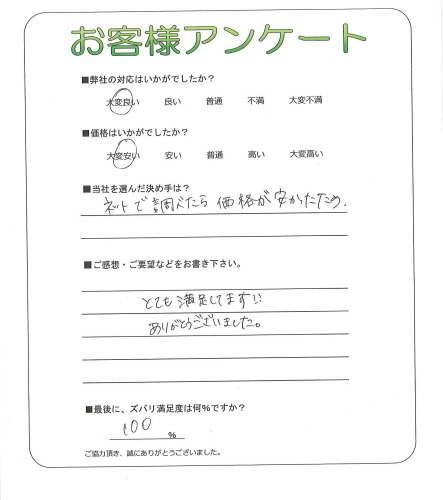 お客様アンケート
■弊社の対応はいかがでしたか?
大変良い 良い 普通 不満 大変不満
■価格はいかがでしたか?
大変安い 安い 普通 高い 大変高い
■当社を選んだ決め手は?
ネットで調べたら価格が安かったため.
■ご感想・ご要望などをお書き下さい。
とても満足してます!!
ありがとうございました。
■最後に、ズバリ満足度は何%ですか?
100 %
ご協力頂き、誠にありがとうございました。